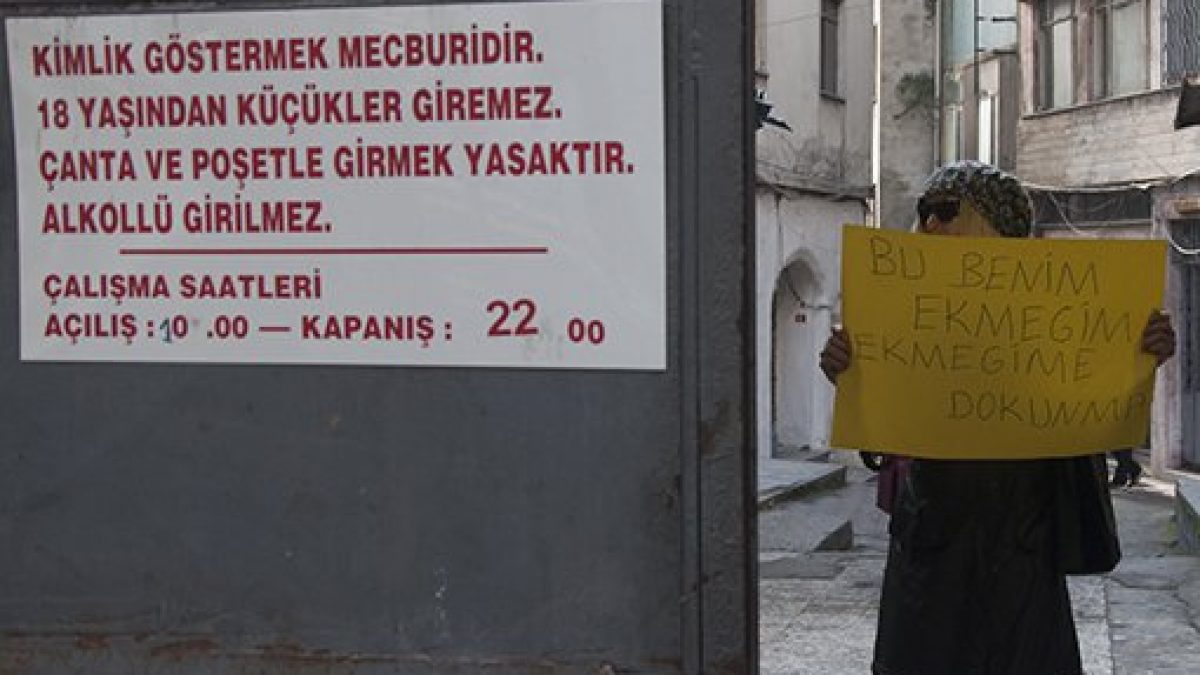 KİMLİK GÖSTERMEK MECBURİDİR.
18 YAŞINDAN KÜÇÜKLER GİREMEZ.
ÇANTA VE POŞETLE GİRMEK YASAKTIR.
ALKOLLÜ GİRİLMEZ.
ÇALIŞMA SAATLERİ
AÇILIŞ : 10 .00 — KAPANIŞ : 22 00
BU BENİM
EKMEGİM
EKMEGİME
DOKUNMA